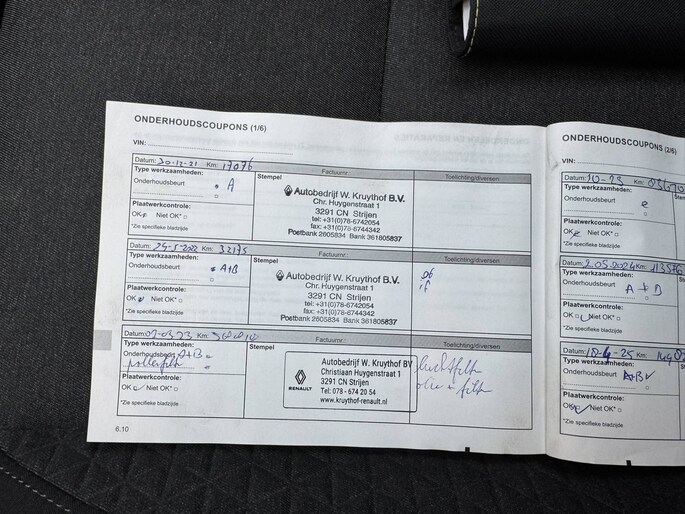 ONDERHOUDSCOUPONS (1/6)
VIN:
Datum: 30-12-21 Km: 17076
Factuurnr.:
Type werkzaamheden:
Onderhoudsbeurt A
Plaatwerkcontrole:
OK Niet OK*
*Zie specifieke bladzijde
Stempel
Autobedrijf W. Kruythof B.V.
Chr. Huygenstraat 1
3291 CN Strijen
tel: +31(0)78-6742054
fax: +31(0)78-6744342
Postbank 2605834 Bank 361805837
Toelichting/diversen
Datum: 24-5-2022 Km: 32175
Factuurnr.:
Type werkzaamheden:
Onderhoudsbeurt A+B
Plaatwerkcontrole:
OK Niet OK*
*Zie specifieke bladzijde
Stempel
Autobedrijf W. Kruythof B.V.
Chr. Huygenstraat 1
3291 CN Strijen
tel: +31(0)78-6742054
fax: +31(0)78-6744342
Postbank 2605834 Bank 361805837
Toelichting/diversen
of
if
Datum: Km:
Factuurnr.:
Type werkzaamheden:
Onderhoudsbeurt A+B
pollenfilter
Plaatwerkcontrole:
OK Niet OK*
*Zie specifieke bladzijde
Stempel
Autobedrijf W. Kruythof BV
Christiaan Huygenstraat 1
3291 CN Strijen
Tel: 078 - 674 20 54
www.kruythof-renault.nl
RENAULT
Toelichting/diversen
luchtfilter
olie + filter
6.10
ONDERHOUDSCOUPONS (2/6)
VIN:
Datum: Km:
Type werkzaamheden:
Onderhoudsbeurt
Plaatwerkcontrole:
OK Niet OK*
*Zie specifieke bladzijde
Datum: 2.05.2024 Km: 113576
Type werkzaamheden:
Onderhoudsbeurt A+B
Plaatwerkcontrole:
OK Niet OK*
*Zie specifieke bladzijde
Datum: 18-4-25
Type werkzaamheden:
Onderhoudsbeurt A+B
Plaatwerkcontrole:
OK Niet OK*
*Zie specifieke bladzijde